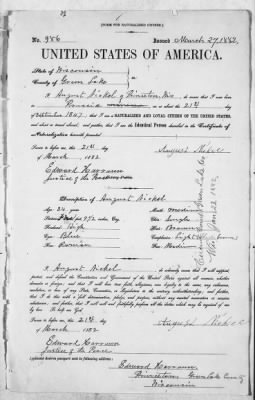 [FORM FOR NATURALIZED CITIZEN.]
No. 986 Issued March 27, 1882
UNITED STATES OF AMERICA.
State of Wisconsin
County of Green Lake
I August Nickel of Princeton, Wis
do swear that I was born in Prussia on or about the 21st day of
September 1847, that I am a NATURALIZED AND LOYAL CITIZEN OF THE UNITED STATES,
and about to travel abroad; and further that I am the Identical Person described in the Certificate of
Naturalization herewith presented.
Sworn to before me this 21st day
of March, 1882
August Nickel
Edward Harroun
Justice of the Peace
Description of August Nickel
Age: 34 years
Mouth: Medium
Stature: 5 feet inches, Eng.
Chin:
Forehead: High
Hair: Brown
Eyes: Blue
Complexion: Light
Nose:
Face: Medium
I, August Nickel, do solemnly swear that I will support,
protect, and defend the Constitution and Government of the United States against all enemies, whether
domestic or foreign; and that I will bear true faith, allegiance, and loyalty to the same, any ordinance,
resolution, or law of any State, Convention, or Legislature to the contrary notwithstanding; and further,
that I do this with a full determination, pledge, and purpose, without any mental reservation or evasion
whatsoever; and further, that I will well and faithfully perform all the duties which may be required of me
by law. So help me God.
Sworn to before me this 21st day
of March 1882
August Nickel
Edward Harroun
Justice of the Peace
Applicant desires passport sent to following address:
Edward Harroun
Princeton Green Lake County
Wisconsin